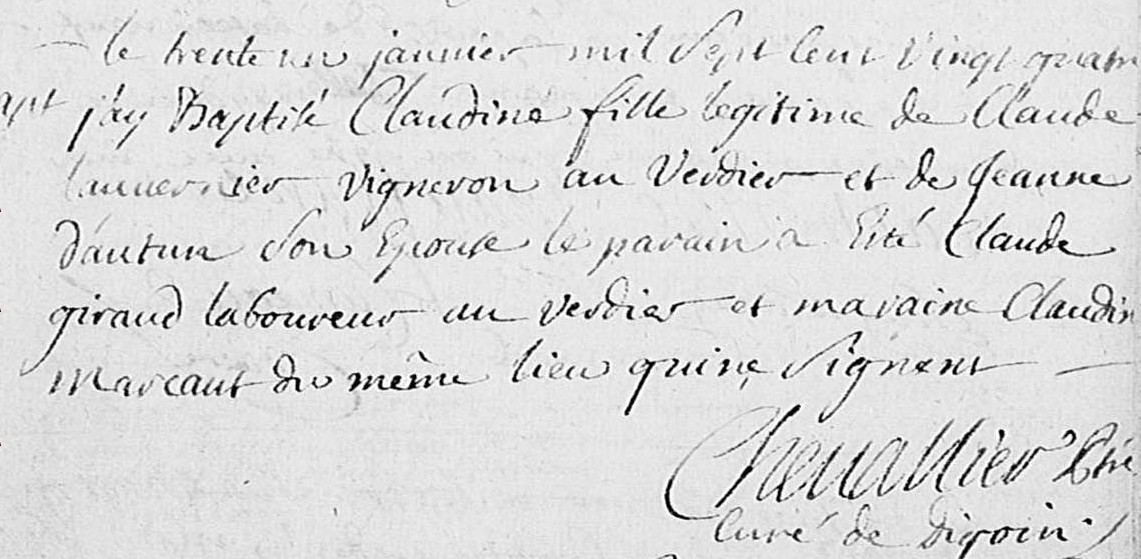 le trente un janvier mil sept cent vingt quatre
apt j'ay Baptisé Claudine fille legitime de Claude
vigneron au Verdier et de Jeanne
d'autun son Epouse le parain a Eté Claude
giraud laboureur au verdier et maraine Claudin
marcaut du même lieu qui ne signent
Chevallier Ptre
Curé de Digoin